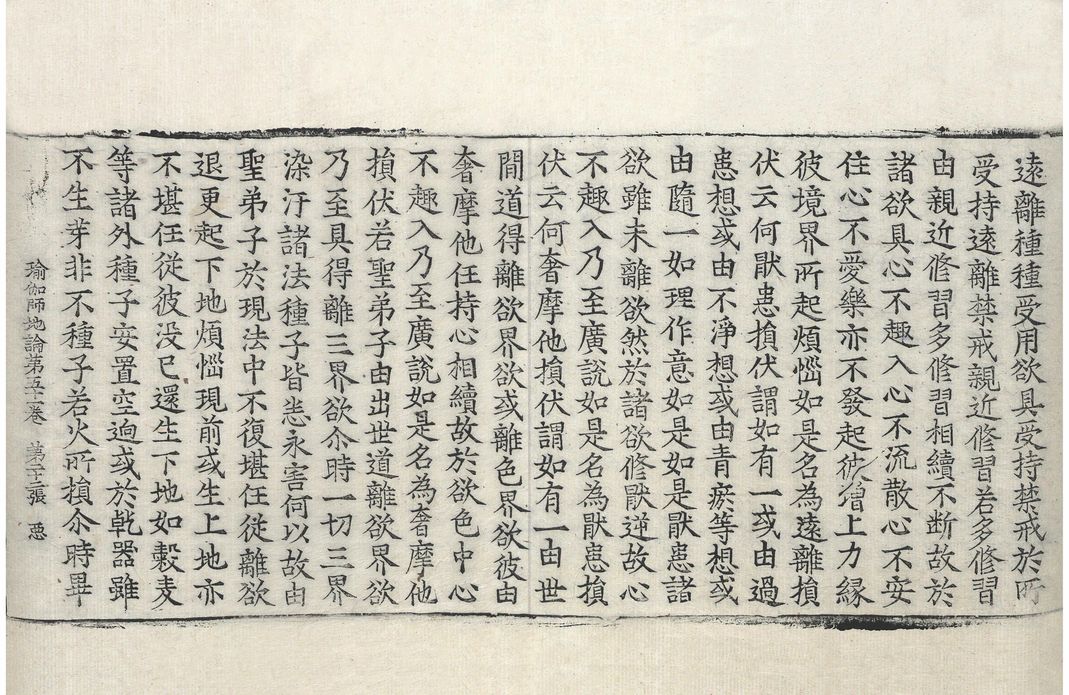 遠離種種受用欲具受持禁戒於所
受持遠離禁戒親近修習若多修習
由親近修習多修習相續不断故於
諸欲具心不趣入心不流散心不安
住心不愛樂亦不發起彼增上力縁
彼境界所起煩惱如是名為遠離損
伏云何猒患損伏謂如有一或由過
患想或由不淨想或由青瘀等想或
由隨一如理作意如是如是猒患諸
欲雖未離欲然於諸欲修猒逆故心
不趣入乃至廣說如是名為猒患損
伏云何奢摩他損伏謂如有一由世
間道得離欲界欲或離色界欲彼由
奢摩他任持心相續故於欲色中心
不趣入乃至廣說如是名為奢摩他
損伏若聖弟子由出世道離欲界欲
乃至具得離三界欲尒時一切三界
染汙諸法種子皆悉永害何以故由
聖弟子於現法中不復堪任從離欲
退更起下地煩惱現前或生上地亦
不堪任從彼没已還生下地如穀麦
等諸外種子安置空逈或於乾器雖
不生芽非不種子若火所損尒時畢
瑜伽師地論第五十一卷　第二十三張　惡